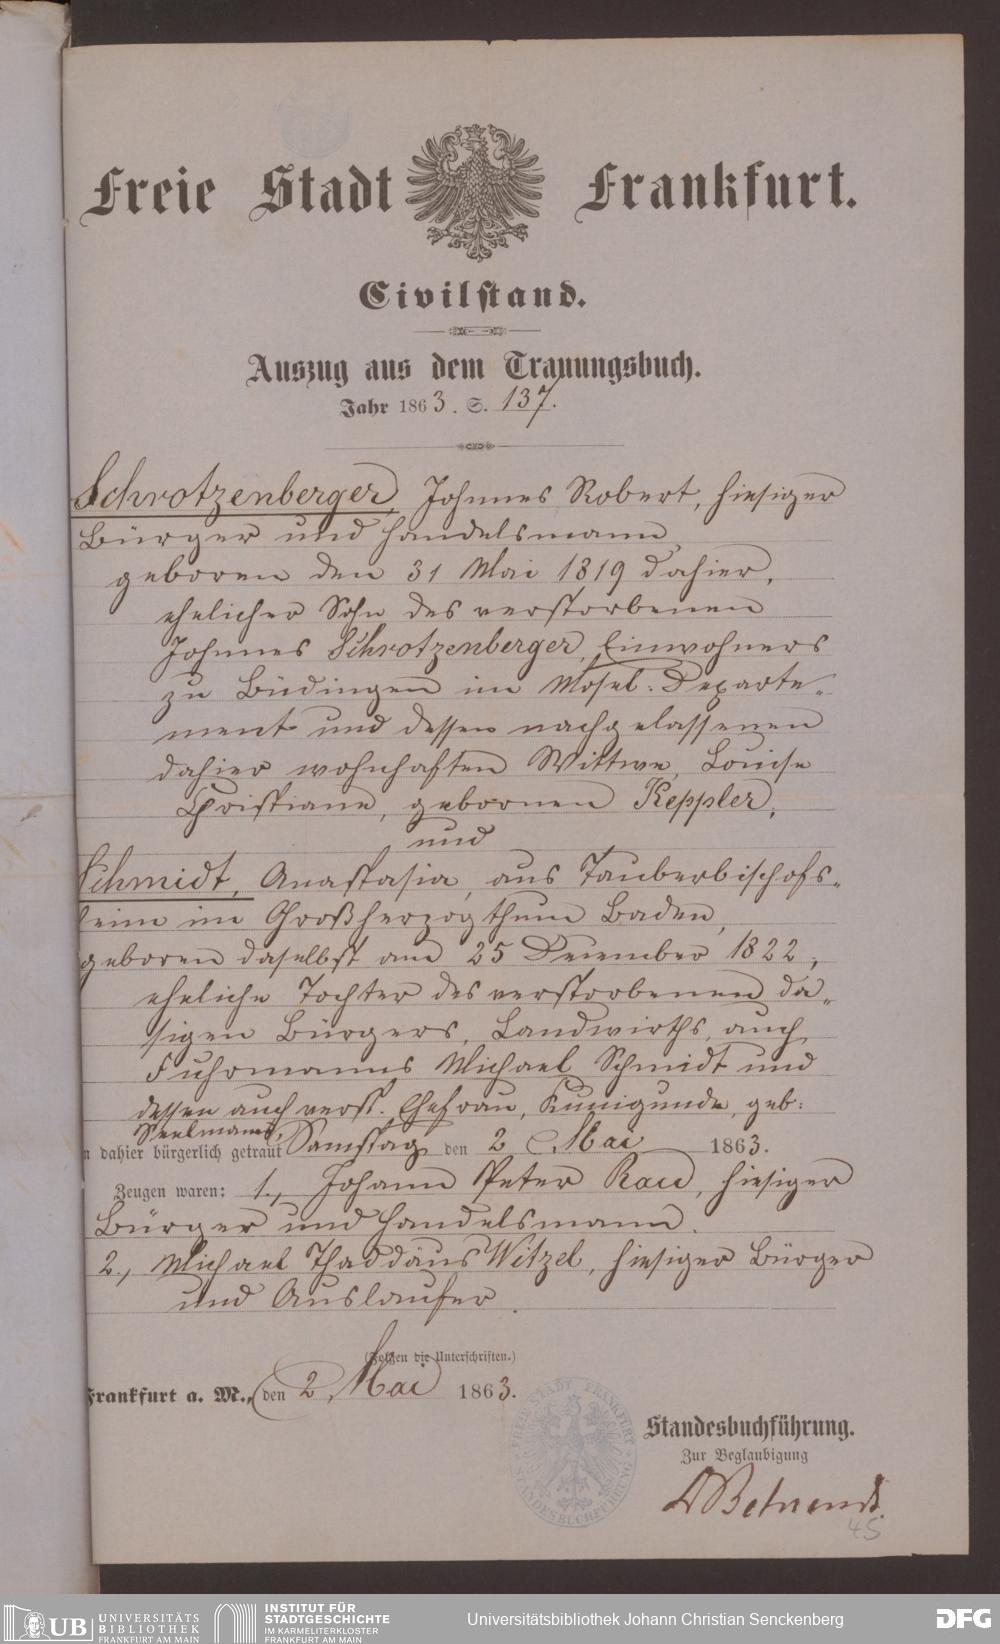 Freie Stadt Frankfurt.
Civilstand.
Auszug aus dem Trauungsbuch.
Jahr 1863. S. 137.
Schrotzenberger, Johannes Robert, hiesiger
Bürger und Handelsmann,
geboren den 31 Mai 1819 dahier,
ehelicher Sohn des verstorbenen
Johannes Schrotzenberger, Einwohners
zu Büdingen im Mosel-Departe-
ment und dessen nachgelassenen
dahier wohnhaften Wittwe, Louise
Christiane, gebornen Keppler,
und
Schmidt, Anastasia, aus Tauberbischofs-
heim im Großherzogthum Baden,
geboren daselbst am 25 December 1822,
eheliche Tochter des verstorbenen da-
sigen Bürgers, Landwirths, auch
Fuhrmanns Michael Schmidt und
dessen auch verst. Ehefrau, Kunigunde, geb:
Seelmann,
n dahier bürgerlich getraut Samstag den 2 Mai 1863.
Zeugen waren: 1., Johann Peter Rau, hiesiger
Bürger und Handelsmann.
2., Michael Thaddäus Witzel, hiesiger Bürger
und Auslaufer.
(Folgen die Unterschriften.)
Frankfurt a. M., den 2 Mai 1863.
FREIE STADT FRANKFURT
STANDESBUCHFÜHRUNG
Standesbuchführung.
Zur Beglaubigung
45
UB UNIVERSITÄTS
BIBLIOTHEK
FRANKFURT AM MAIN
INSTITUT FÜR
STADTGESCHICHTE
IM KARMELITERKLOSTER
FRANKFURT AM MAIN
Universitätsbibliothek Johann Christian Senckenberg
DFG